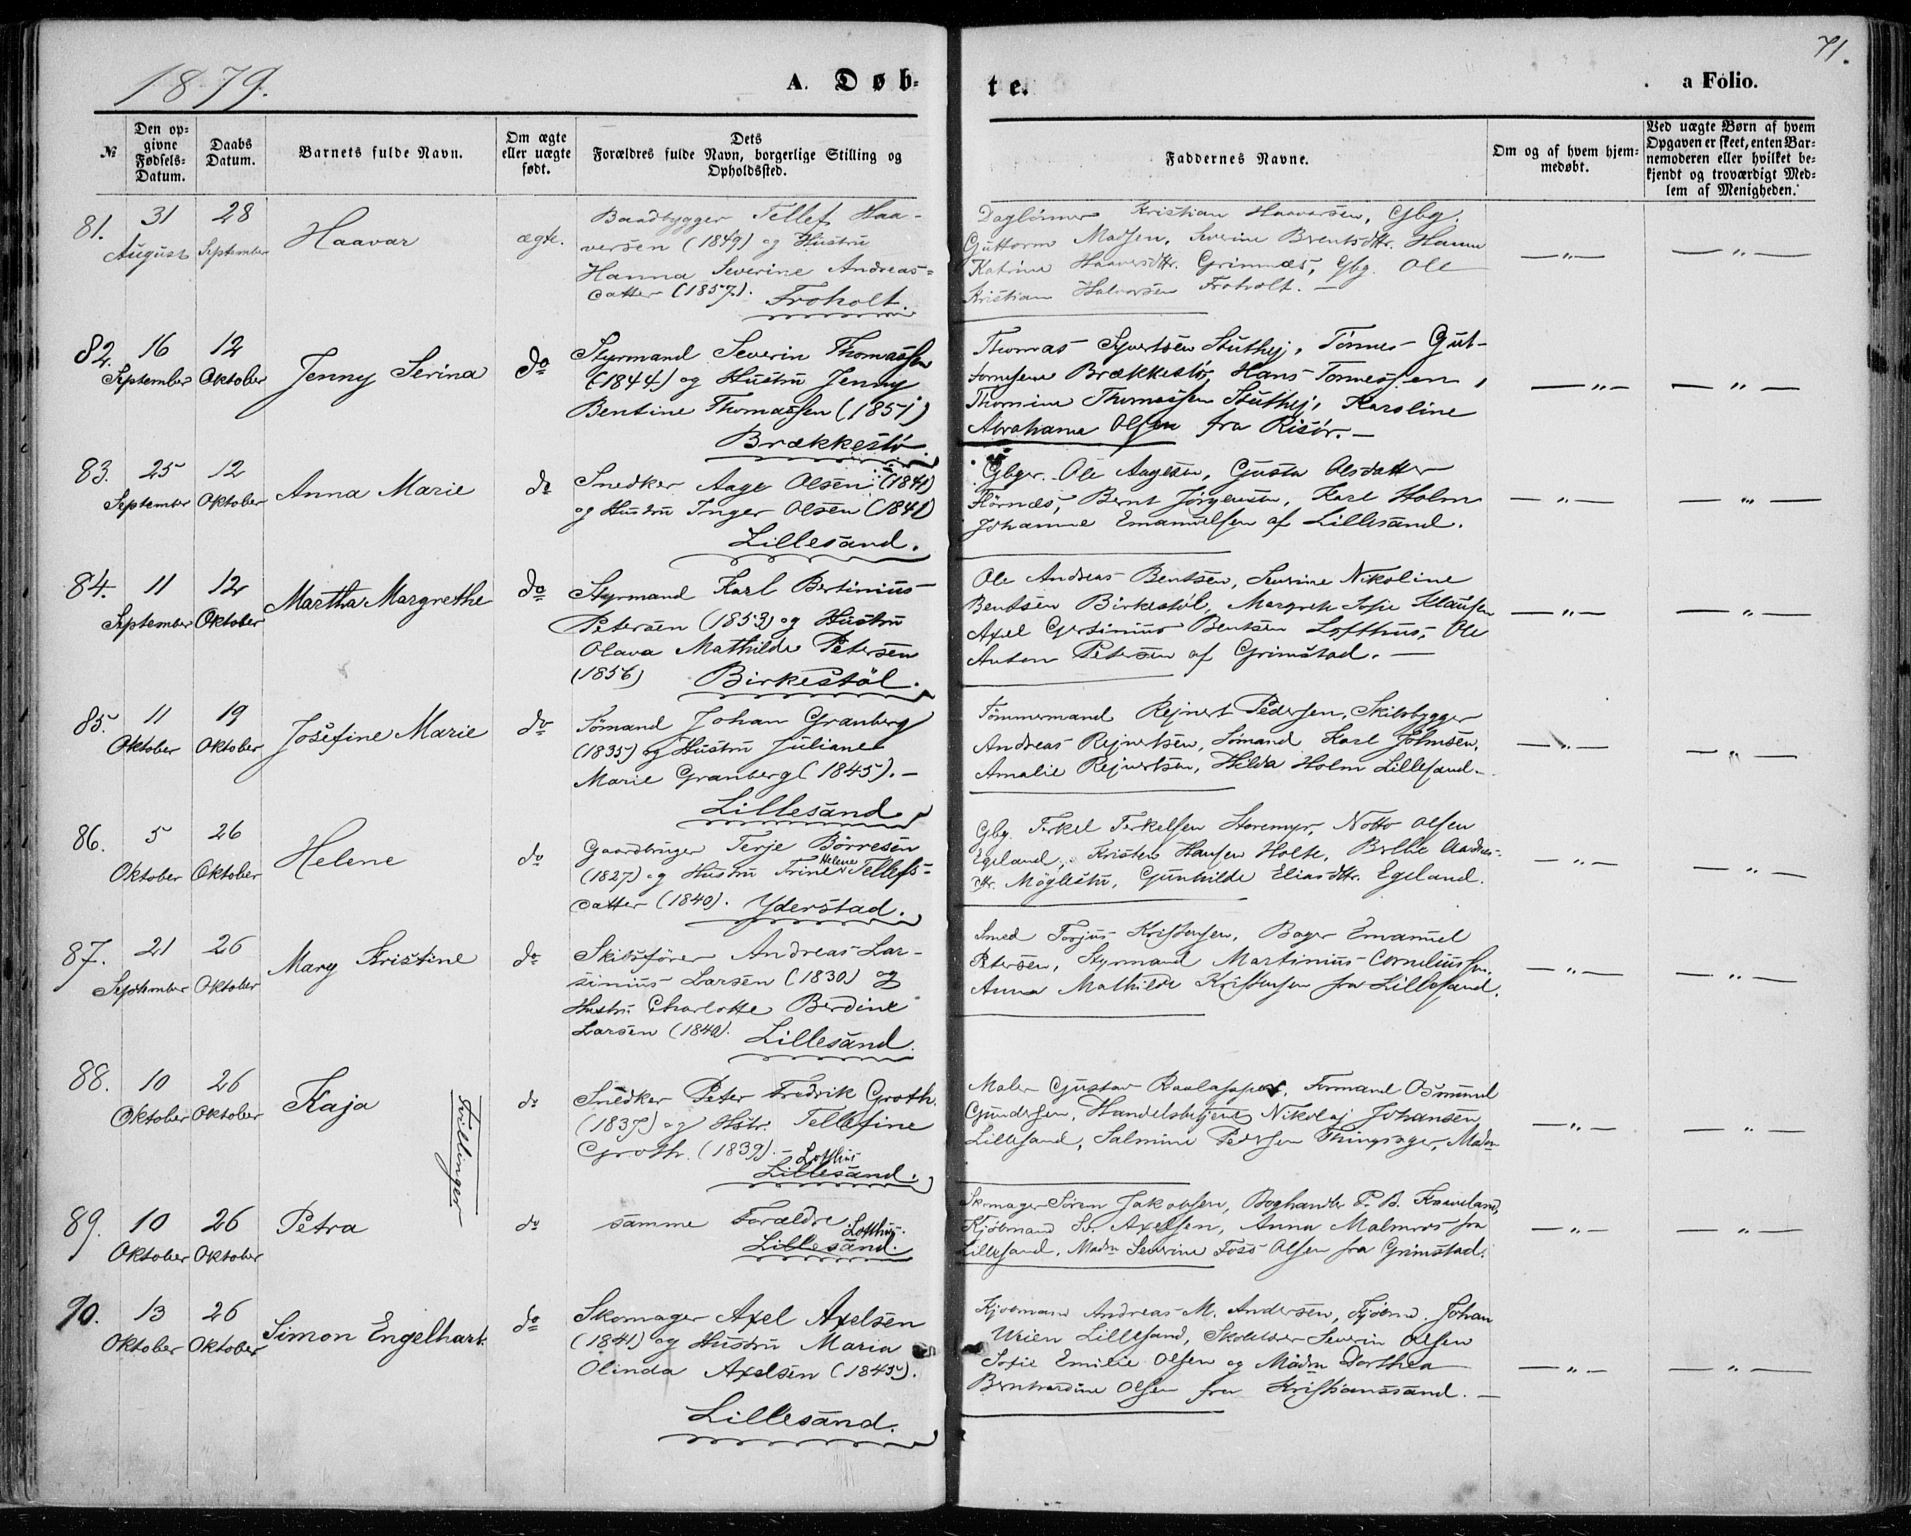 1879.
A. Døb-
te.
a Folio.
71.
№
Den op-
givne
Fødsels-
Datum.
Daabs
Datum.
Barnets fulde Navn.
Om ægte
eller uægte
født.
Dets
Forældres fulde Navn, borgerlige Stilling og
Opholdssted.
Faddernes Navne.
Om og af hvem hjem-
medøbt.
Ved uægte Børn af hvem
Opgaven er skeet, enten Bar-
nemoderen eller hvilket be-
kjendt og troværdigt Med-
lem af Menigheden.
81.
31
August
28
September
Haavar
ægte.
Baadbygger Tellef Haa-
versen (1849) og Hustru
Hanna Severine Andreas-
datter (1857).
Froholt.
Daglønner Kristian Haaversen, Gbg.
Guttorm Madsen, Severine Berntsdtr. Hanna
Katrine Haaversdtr. Grimnæs, Gbg. Ole
Kristian Halvorsen Froholt. —
— " —
— " —
82.
16
September
12
Oktober
Jenny Serina
do
Styrmand Severin Thomassen
(1844) og Hustru Jenny
Bentine Thomassen (1851)
Brækkestø.
Thomas Syvertsen Stuthej, Tønnes Gut-
tormsens Brækkestø, Hans Tønnessen,
Thomine Thomassen Stuthej, Karoline
Abrahama Olsen fra Risør. —
— " —
— " —
83.
25
September
12
Oktober
Anna Marie
do
Snedker Aage Olsen (1841)
og Hustru Inger Olsen (1841)
Lillesand.
Gbgr. Ole Aagesen, Gusta Olsdatter
Hørnæs, Bernt Jørgensen, Karl Holm
Johanne Emanuelsen af Lillesand.
— " —
— " —
84.
11
September
12
Oktober
Martha Margrethe
do
Styrmand Karl Bertinius
Petersen (1853) og Hustru
Olava Mathilde Petersen
(1856)
Birkestøl.
Ole Andreas Bentsen, Severine Nikoline
Bentsen Birkestøl, Margreth Sofie Klausen
Axel Gertinius Bentsen Lofthus, Ole
Anton Petersen af Grimstad. —
— " —
— " —
85.
11
Oktober
19
Oktober
Josefine Marie
do
Sømand Johan Granberg
(1835) og Hustru Juliane
Marie Granberg (1845). —
Lillesand
Tømmermand Rejnert Pedersen, Skibsbygger
Andreas Rejnertsen, Sømand Karl Johnsen,
Amalie Rejnertsen, Hilda Holm Lillesand. —
— " —
— " —
86.
5
Oktober
26
Oktober
Helene
do
Gaardbruger Terje Børresen
Helene
(1827) og Hustru Trine Tellefs-
datter (1840).
Yderstad.
Gbg. Terkel Terkelsen Storemyr, Notto Olsen
Egeland, Kristen Hansen Holte, Birthe Andreas-
dtr. Møglestu, Gunhilde Eliasdtr. Egeland.
— " —
— " —
87.
21
September
26
Oktober
Mary Kristine
do
Skibsfører Andreas Lar-
sinius Larsen (1830) og
Hustru Charlotte Berdine
Larsen (1840).
Lillesand.
Smed Torjus Kristensen, Bager Emanuel
Petersen, Styrmand Martinius Corneliussen,
Anna Mathilde Kristensen fra Lillesand.
— " —
— " —
88.
10
Oktober
26
Oktober
Kaja
Tvillinger
do
Snedker Peter Fredrik Groth.
(1837) og Hstr. Tellefine
Groth. (1839). —
Lofthus
Lillesand.
Maler Gustav, Formand Osmund
Gundersen, Handelsbetjent Nikolaj Johansen
Lillesand, Salmine Pedersen Thingsager, Madm
— " —
— " —
89.
10
Oktober
26
Oktober
Petra
do
samme Forældre
Lofthus.
Lillesand.
Skomager Søren Jakobsen, Boghandler P. B.
Kjøbmand Axelsen, Anna Malmros fra
Lillesand. Madm Severine Foss Olsen fra Grimstad.
— " —
— " —
90.
13
Oktober
26
Oktober
Simon Engelhart.
do
Skomager Axel Axelsen
(1841) og Hustru Maria
Olinda Axelsen (1845).
Lillesand.
Kjøbmand Andreas M. Andersen, Kjøbmd. Johan
Lillesand, Severin Olsen
Sofie Emilie Olsen og Madm Dorthea
Bernhardine Olsen fra Kristianssand. —
— " —
— " —